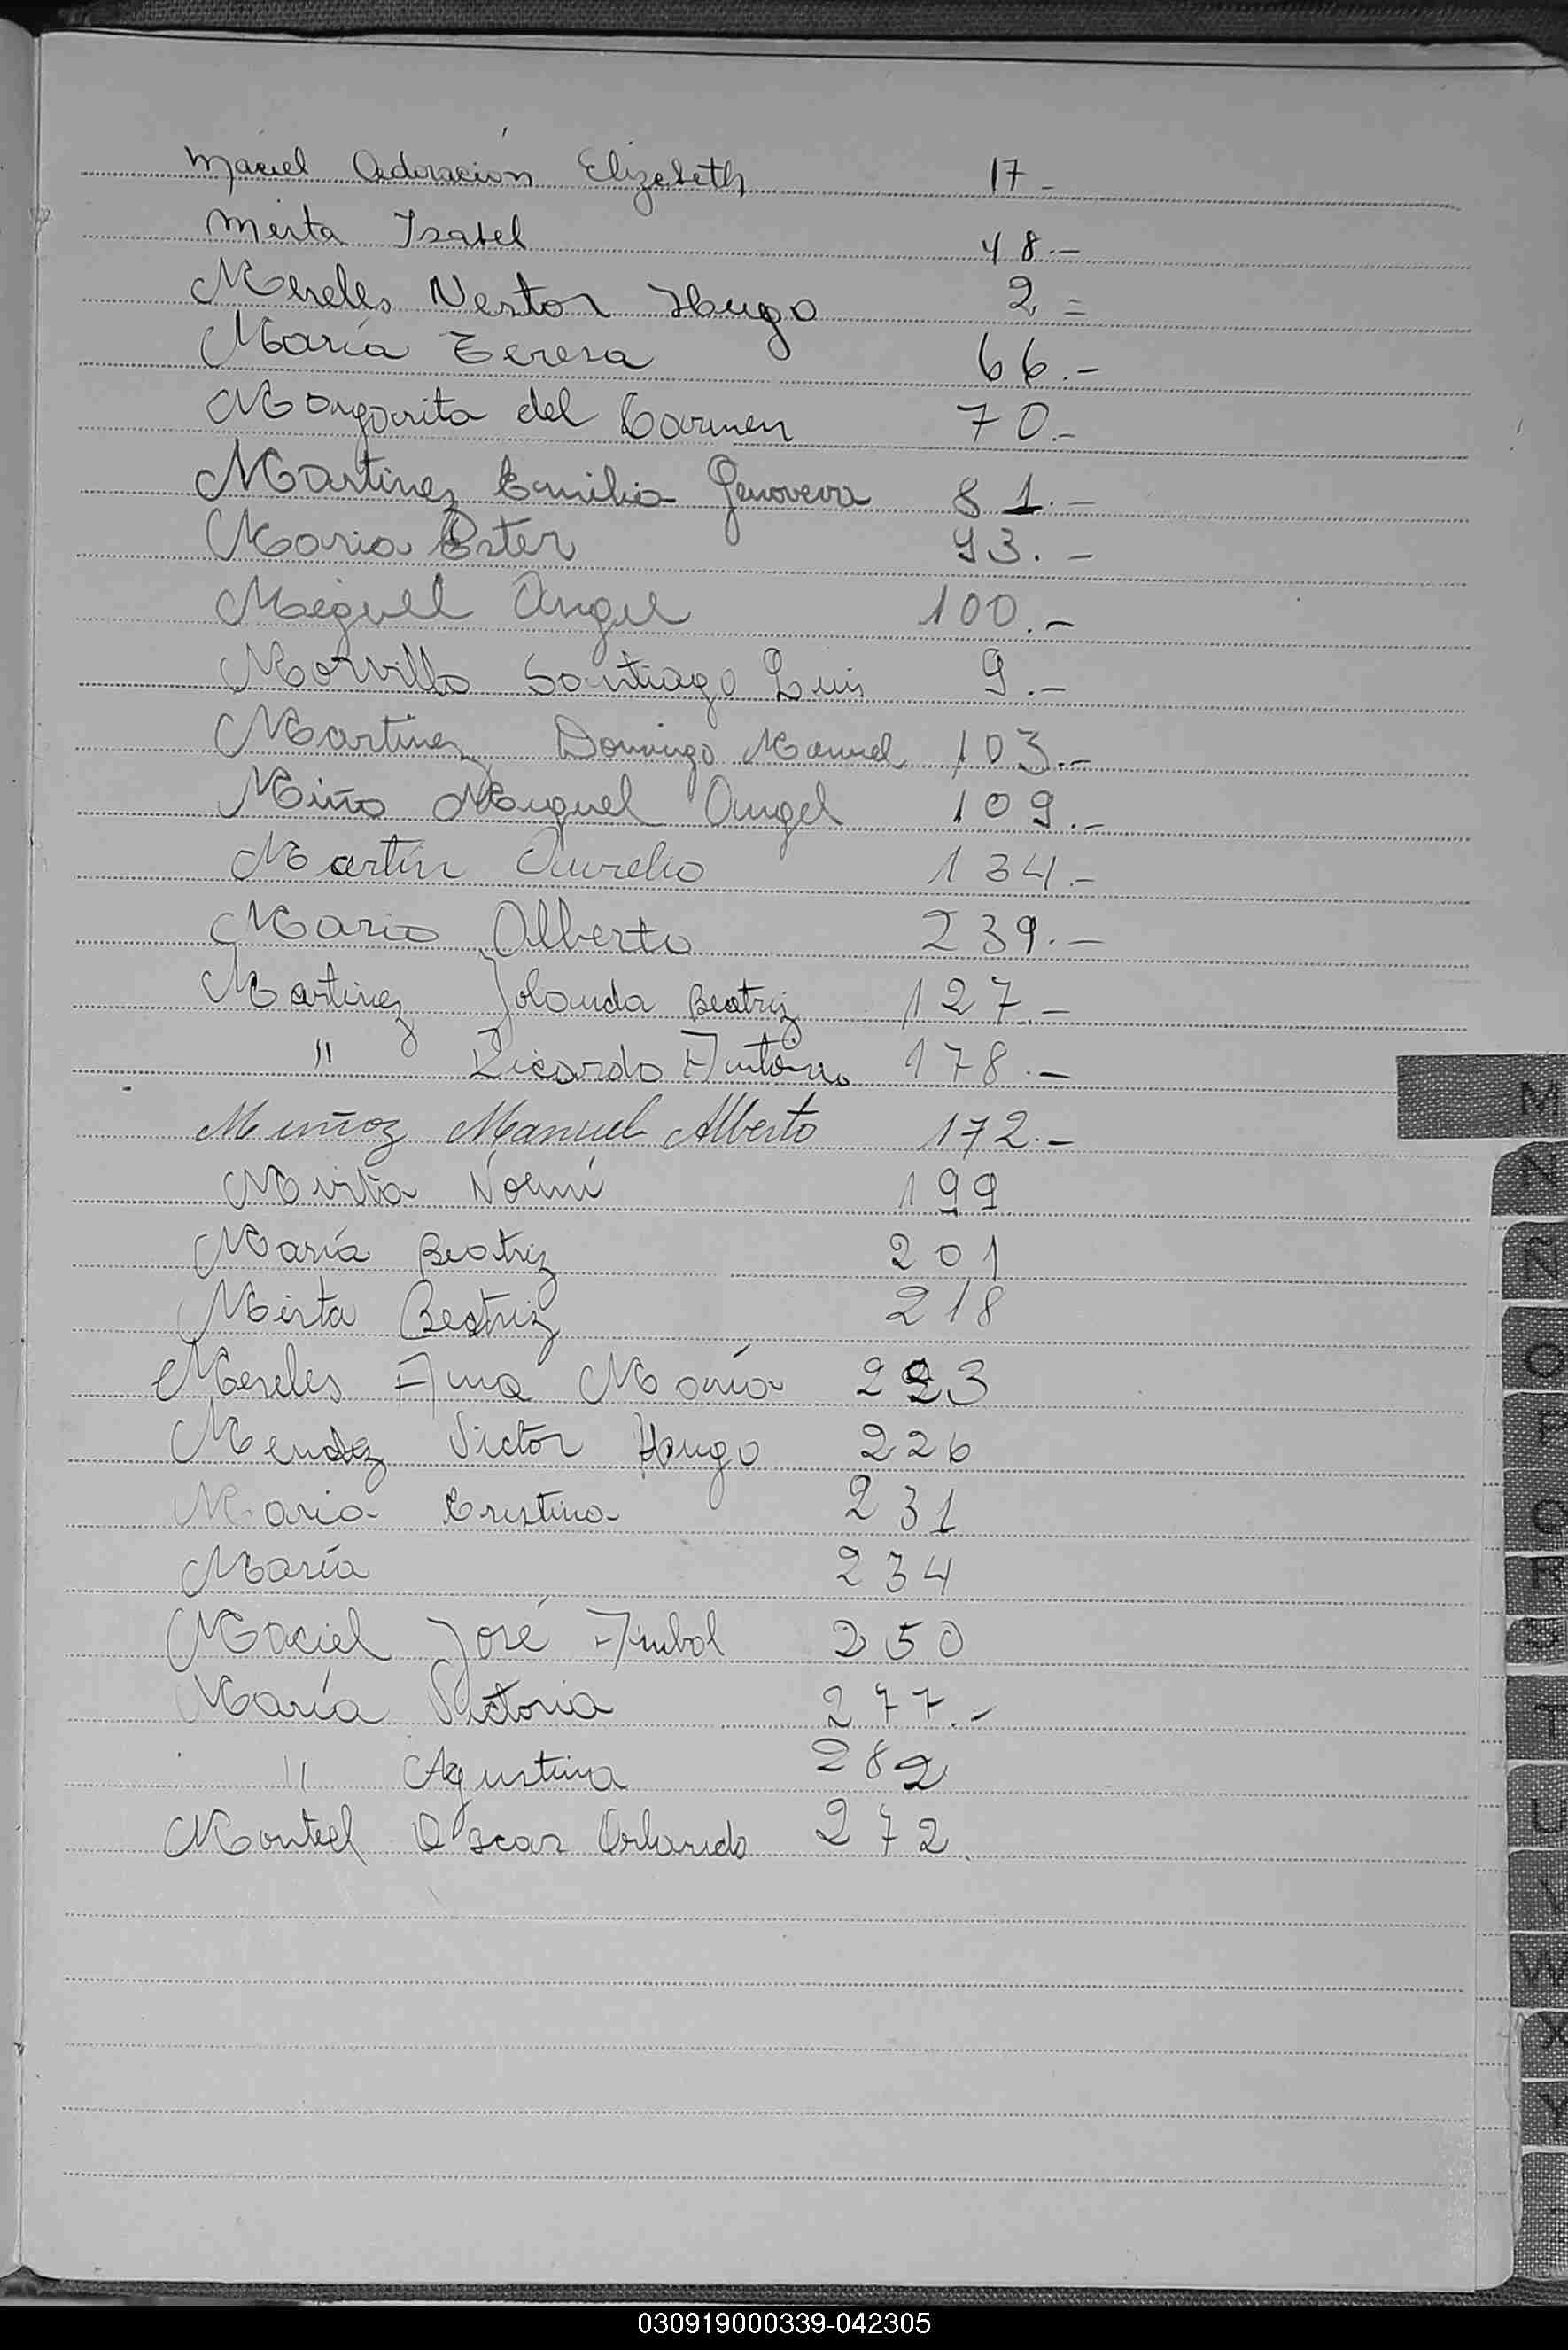 Maciel Adoración Elizabeth 17 -
Mirta Isabel 48.-
Mereles Nestor Hugo 2 =
María Teresa 66.-
Margarita del Carmen 70.-
Martinez Emilia Genoveva 81.-
Maria Ester 93.-
Miguel Angel 100.-
Morvillo Santiago Luis 9.-
Martinez Domingo Manuel 103.-
Miño Miguel Angel 109.-
Martín Aurelio 134.-
Mario Alberto 239.-
Martinez Jolanda Beatriz 127.-
" Ricardo Antonio 178.-
Muñoz Manuel Alberto 172.-
Mirta Noemí 199
María Beatriz 201
Mirta Beatriz 218
Mereles Ana María 223
Mendez Victor Hugo 226
Maria Cristina 231
María 234
Maciel José Anibal 250
María Victoria 277.-
" Agustina 282
Montiel Oscar Orlando 272
M
N
Ñ
O
P
Q
R
S
T
U
V
W
X
Y
030919000339-042305